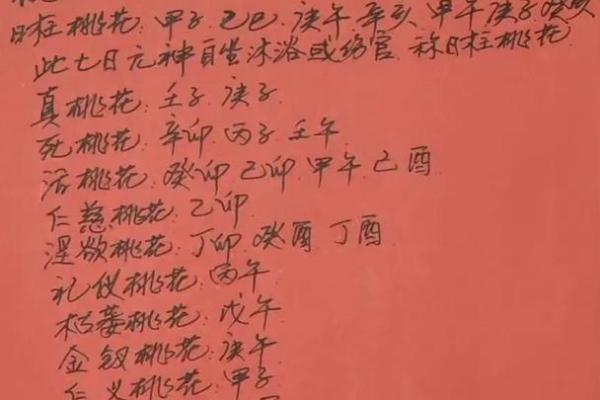 日柱桃花:甲子、己巳、庚午、辛亥、甲午、庚子、癸亥
此七日元神自坐沐浴或伤官、称日柱桃花
真桃花:壬子、庚子
死桃花:辛卯、丙子、壬午
活桃花:癸卯、己卯、甲午、己酉
仁慈桃花:乙卯
淫欲桃花:丁卯、癸酉、丁酉
礼仪桃花:丙午
枯萎桃花:戊午
金钗桃花:庚午
仁义桃花:甲子